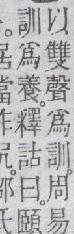 以雙聲爲訓周易
訓爲養釋詁曰頤